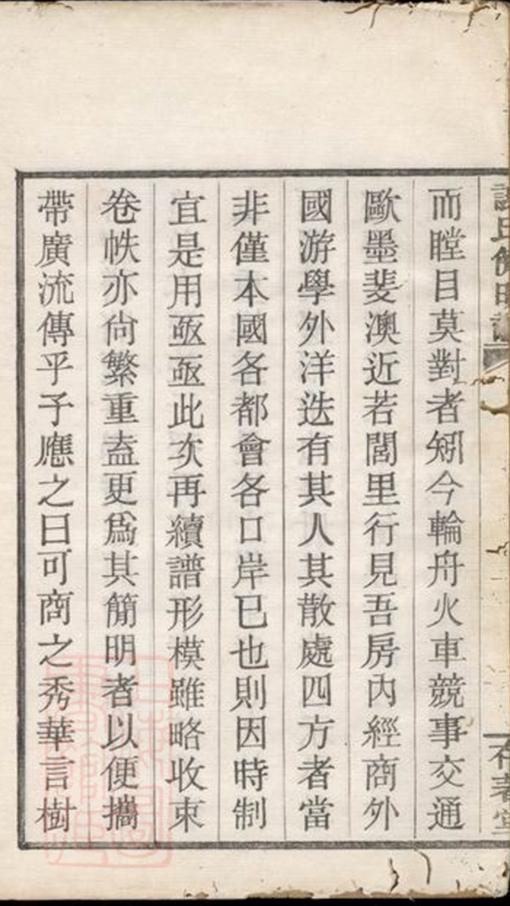 而瞠目莫對者矧今輪舟火車競事交通
歐墨斐澳近若閭里行見吾房內經商外
國游學外洋迭有其人其散處四方者當
非僅本國各都會各口岸已也則因時制
宜是用亟亟此次再續譜形模雖略收束
卷帙亦尙繁重盍更爲其簡明者以便攜
帶廣流傳乎予應之曰可商之秀華言樹